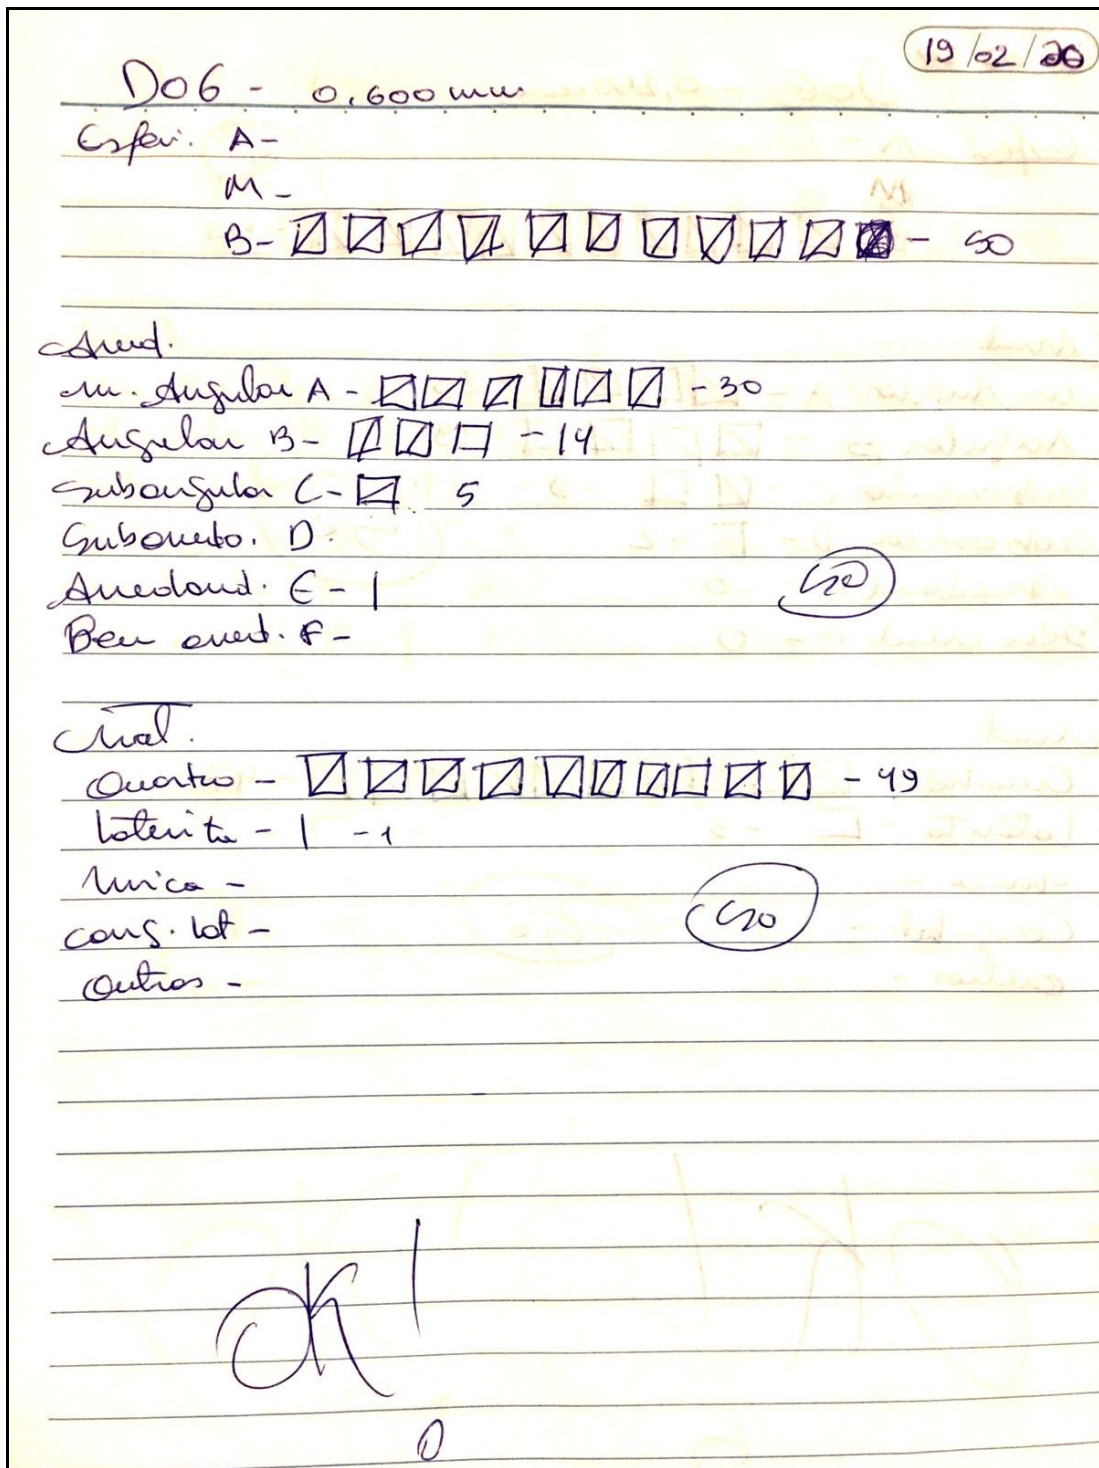 19/02/20
D06 - 0,600 mm
Esfer. A -
M -
B - - 50
Arred.
m. Angular A - - 30
Angular B - - 14
Subangular C - 5
Subarredo. D.
Arredond. E - |
50
Bem arred. F -
Mat.
Quartzo - - 49
Laterita - | - 1
Mica -
cong. lat -
50
Outros -
OK !